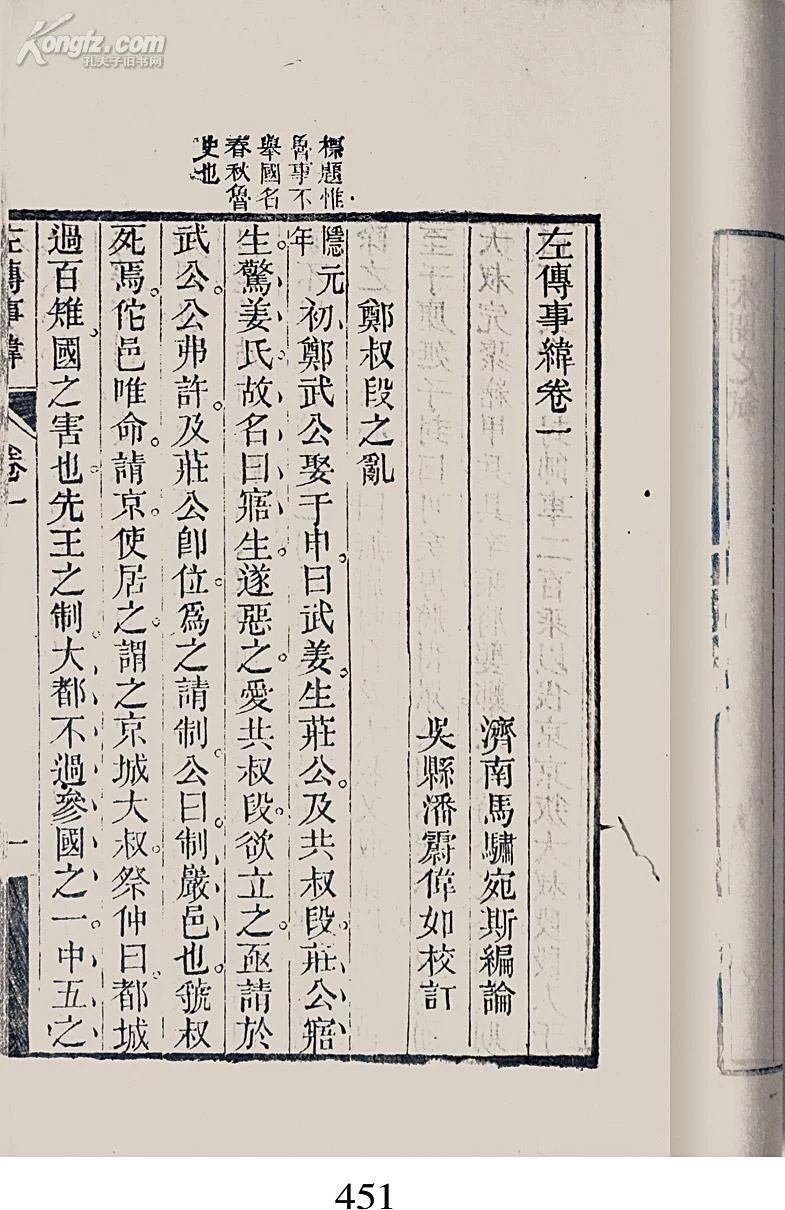 Kongfz.com
孔夫子旧书网
標題惟
魯事不
舉國名
春秋魯
史也
左傳事緯卷一
濟南馬驌宛斯編論
吳縣潘霨偉如校訂
鄭叔段之亂
隱元年初鄭武公娶于申曰武姜生莊公及共叔段。莊公寤
生驚姜氏故名曰寤生遂惡之。愛共叔段欲立之。亟請於
武公。公弗許。及莊公卽位爲之請制公曰制嚴邑也。虢叔
死焉。佗邑唯命。請京使居之謂之京城大叔。祭仲曰都城
過百雉。國之害也先王之制大都不過參國之一中五之
左傳事緯
卷一
一
451